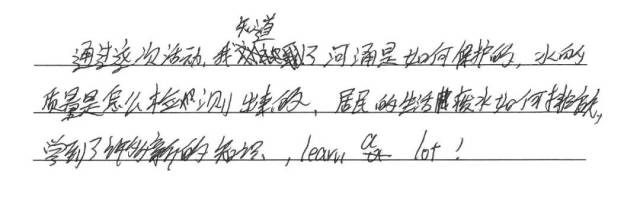 知道
通过这次活动,我了河涌是如何保护的,水的
质量是怎么检测出来的,居民的生活废水如何排放,
学到了许多新的知识,learn a lot!